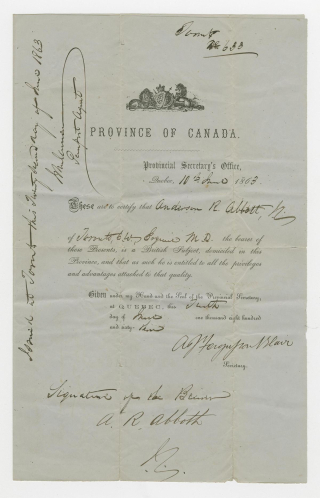 Toronto
No 633
PROVINCE OF CANADA.
Provincial Secretary's Office,
Quebec, 10th June 1863.
These are to certify that Anderson R. Abbott, Jr.
of Toronto C.W. Esquire M.D. the bearer of
these Presents, is a British Subject domiciled in this
Province, and that as such he is entitled to all the privileges
and advantages attached to that quality.
Given under my Hand and the Seal of the Provincial Secretary,
at QUEBEC, this Tenth
day of June one thousand eight hundred
and sixty-three
A J Fergusson Blair
Secretary.
Signature of the Bearer
A. R. Abbott
Issued at Toronto this day of June 1863
Passport Agent